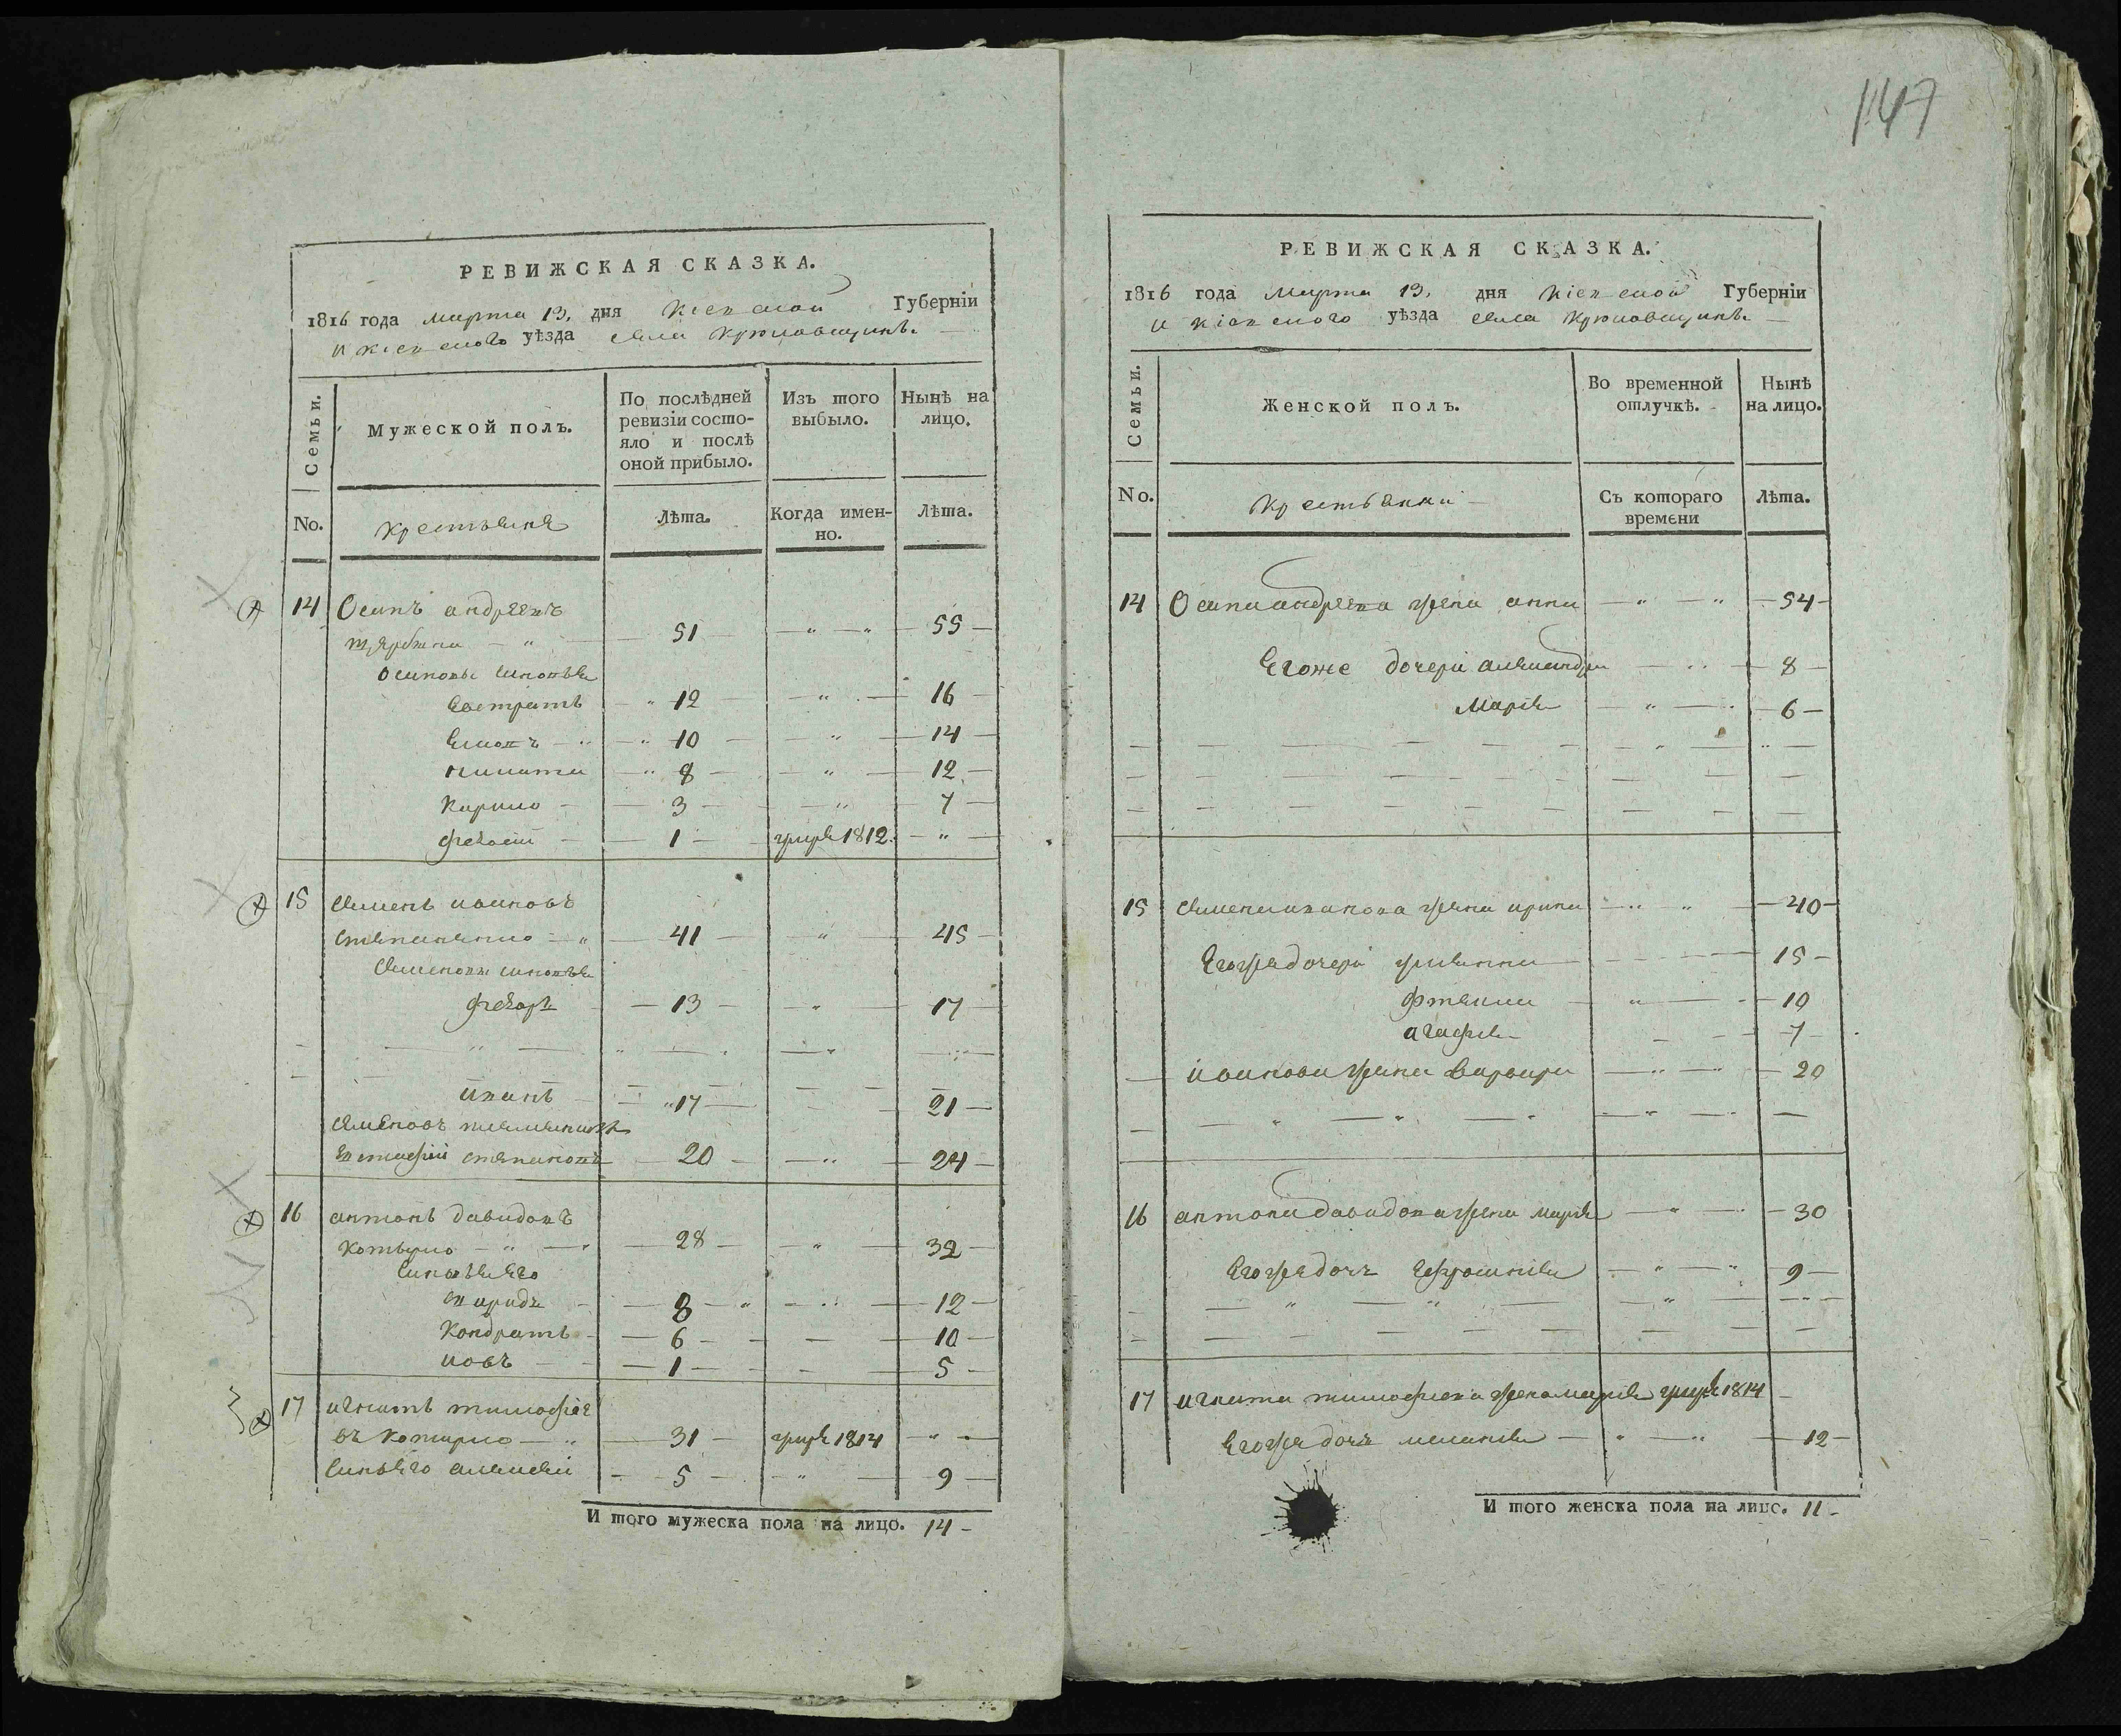 РЕВИЖСКАЯ СКАЗКА.
1816 года марта 13. дня Кіевской Губерніи
и Кіевского уѣзда села Крюковщинѣ.
Семьи.
Мужеской полъ.
По послѣдней ревизіи состояло и послѣ оной прибыло.
Изъ того выбыло.
Нынѣ на лицо.
No.
крестьяне
Лѣта.
Когда именно.
Лѣта.
14 Осипъ андреевъ
51 " " 55
Осиповы синовья
Евстратъ " 12 " 16
" 10 " 14
" 8 " 12
Кирило 3 " 7
Федосій 1 умре 1812. "
15 Семенъ ивановъ
Степаненко " 41 " 45
Семеновы синовья
Федоръ 13 " 17
Иванъ " 17 21
Семеновъ племенникъ
Евстафій степановъ 20 " 24
16 антонъ давидовъ
Котыло " 28 " 32
Синовья Его
8 " 12
Кондратъ 6 10
иовъ 1 5
17 игнатъ тимофіе
въ 31 умре 1814 "
Синъ Его алексей 5 " 9
И того мужеска пола на лицо. 14
147
РЕВИЖСКАЯ СКАЗКА.
1816 года Марта 13. дня Кіевской Губерніи
и Кіевского уѣзда села Крюковщинѣ.
Семьи.
Женской полъ.
Во временной отлучкѣ.
Нынѣ на лицо.
No.
Крестьянки
Съ котораго времени
Лѣта.
14 Осипа андреева жена анна " " 54
Егоже дочери александра " 8
Марія " 6
15 Семена иванова жена ирина " " 40
Егоже дочери улиянна 15
Фтекла " 10
агафія 7
иванова жена Варвара " 20
16 антона давидова жена марія " 30
Егоже дочъ Ефросинія " " 9
17 игната тимофиева жена марія умре 1814
Егоже дочъ меланія " " 12
И того женска пола на лицо. 11